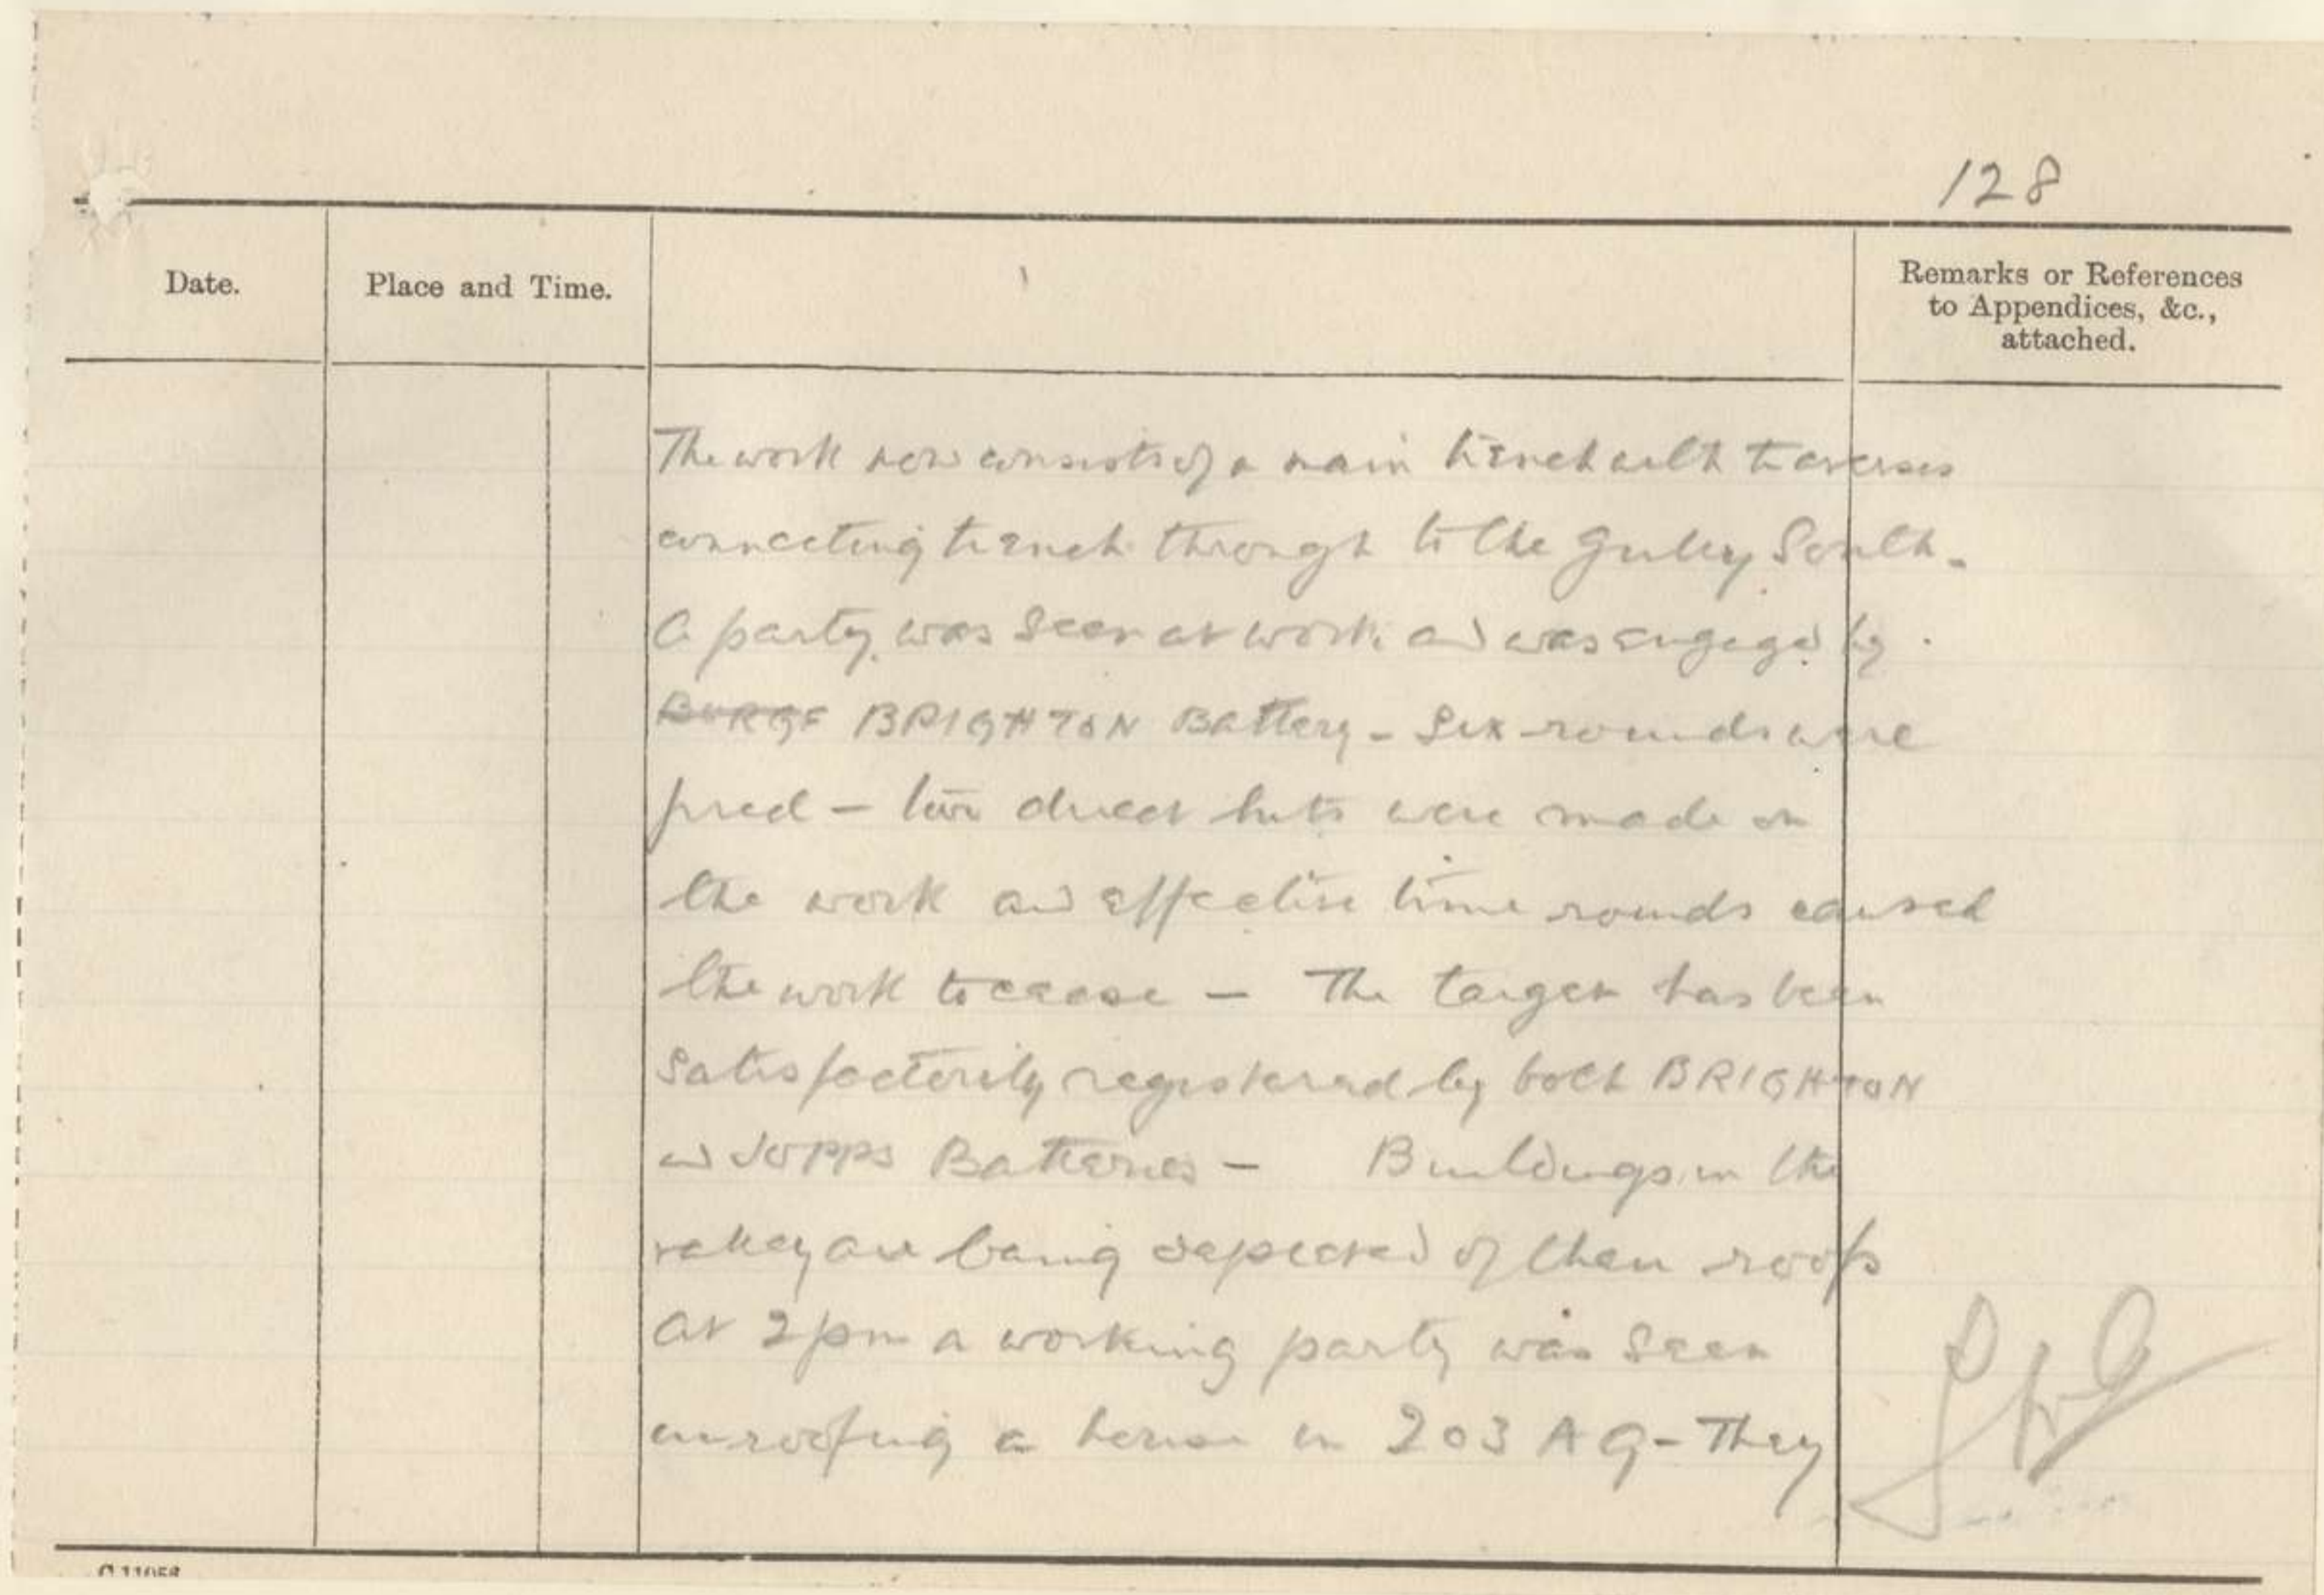 128
Date.
Place and Time.
Remarks or References
to Appendices, &c.,
attached.
The work now consists of a main trench with traverses
connecting trench through to the Gulley South.
A party was seen at work and was engaged by
BRIGHTON Battery - Six rounds were
fired - two direct hits were made on
the work and effective time rounds caused
the work to cease - The target has been
satisfactorily registered by both BRIGHTON
and JOPPS Batteries - Buildings in the
valley are being of their roofs
At 2 pm a working party was seen
unroofing a house in 203 A 9 - They